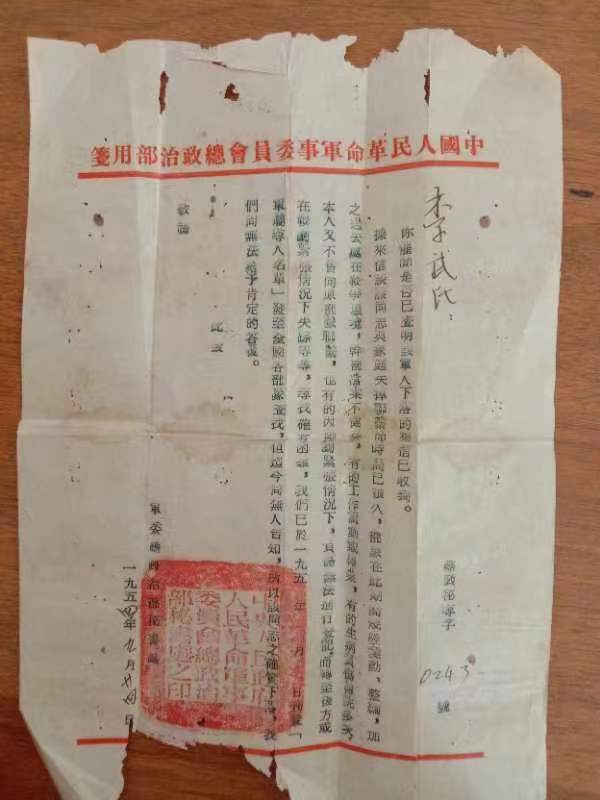 中國人民革命軍事委員會總政治部用箋
總政秘尋字 0243 號
李武氏：
你詢問是否已查明該軍人下落的來信已收到。
據來信談該同志與家庭失掉聯繫的時間已很久，在此期間或經變動、整編，加
之過去處在戰爭環境，不便，有的工作調動頻繁，有的生病負傷
本人又不曾向原部隊聯繫，也有的因時局緊張情況下，負傷無法進行登記，而轉至後方或
在戰鬥緊張情況下失蹤等等，尋找確有困難，我們已於一九五 年 月 日刊登「
軍屬尋人名單」發至全國各部隊查找，但迄今尚無人告知，所以該同志之確實下落，我
們尚無法給予肯定的答復。
此致
敬禮
軍委總政治部秘書處
一九五四年九月廿四日
中央人民政府
人民革命軍事
委員會總政治
部秘書處之印